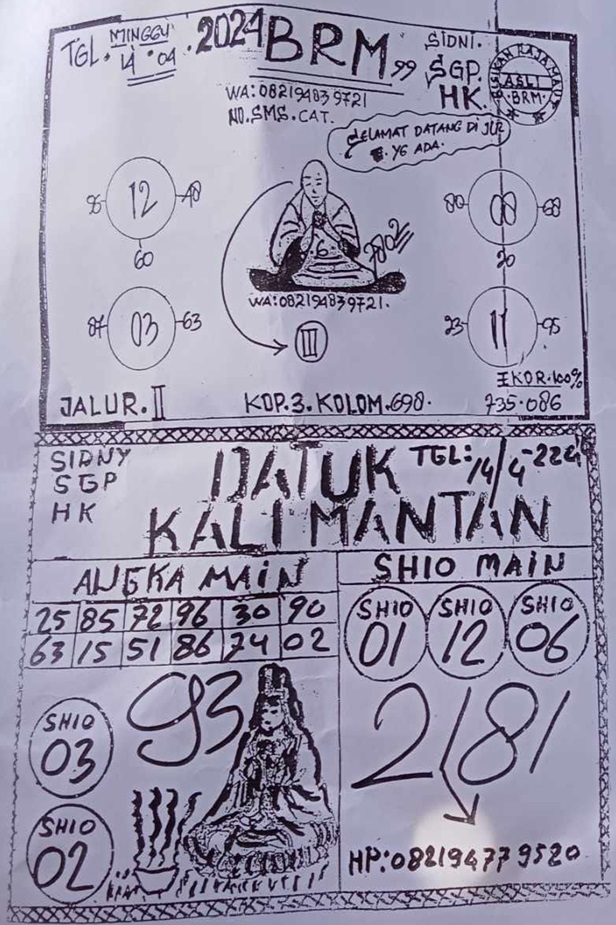 TGL. MINGGU 14.04.2024 BRM 99
SIDNI.
SGP.
HK.
ASLI
BRM
WA:082194839721
NO.SMS.CAT.
SELAMAT DATANG DI JLR
YG ADA.
12
48
60
08
80
68
20
2802
WA:082194839721.
03
87
63
III
11
23
95
EKOR.100%
JALUR.II
KOP.3.KOLOM.698.
735.086
SIDNY
SGP
HK
DATUK
KALIMANTAN
TGL:14/4-224
ANGKA MAIN
25 85 72 96 30 90
63 15 51 86 74 02
SHIO MAIN
SHIO 01
SHIO 12
SHIO 06
SHIO 03
93
2181
SHIO 02
HP:082194779520